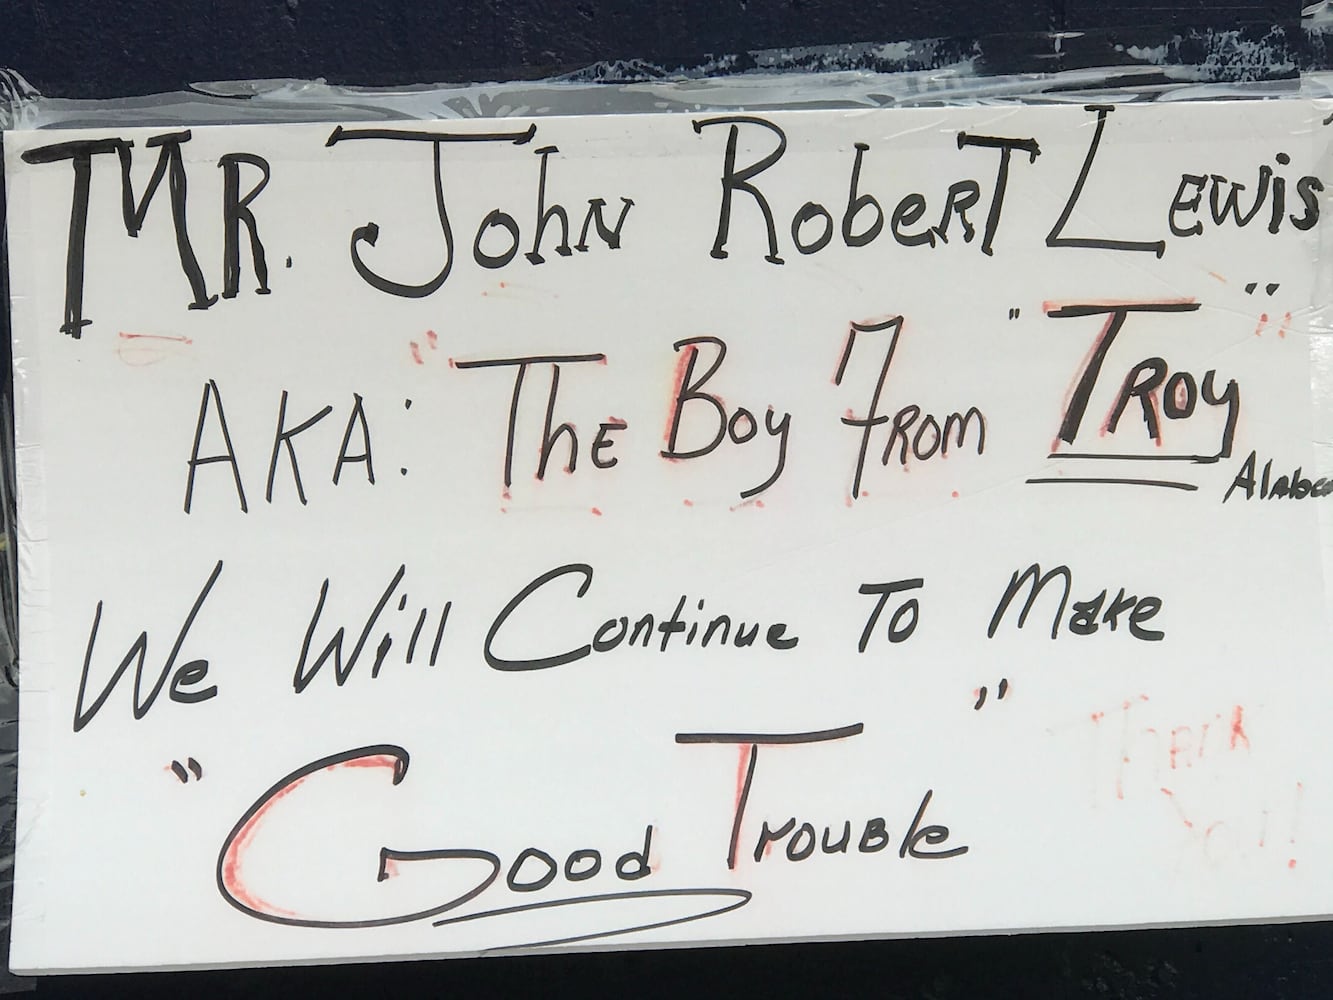 MR. John Robert Lewis
AKA: "The Boy From "Troy"
Alabam
We Will Continue To Make
"Good Trouble"
Thank
You!